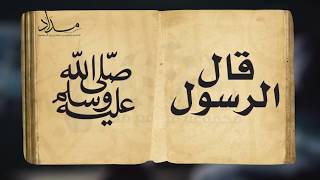 مداد
قال
الرسول
صلى الله
عليه وسلم